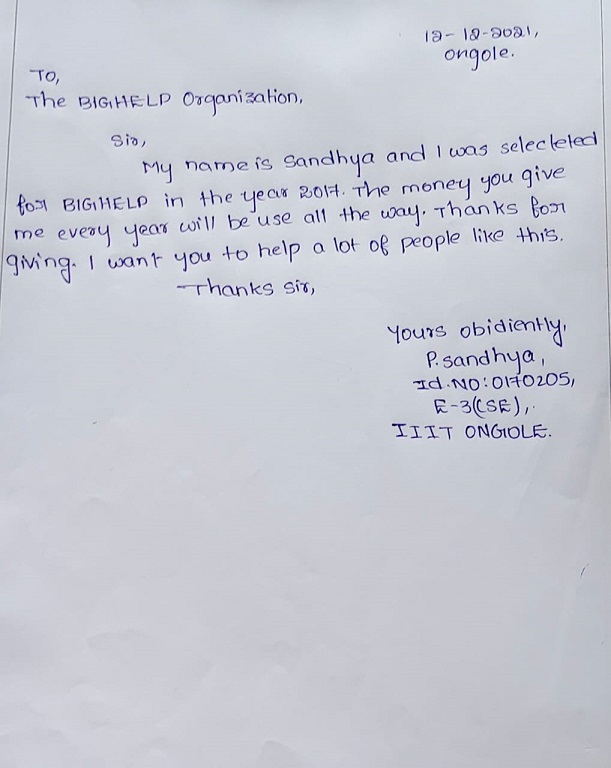 12-12-2021,
ongole.
To,
The BIGHELP Organization,
Sir,
My name is Sandhya and I was selecteted
for BIGHELP in the year 2017. The money you give
me every year will be use all the way. Thanks for
giving. I want you to help a lot of people like this.
Thanks Sir,
Yours obidiently,
P. Sandhya,
Id.NO:0170205,
E-3(CSE),
IIIT ONGOLE.